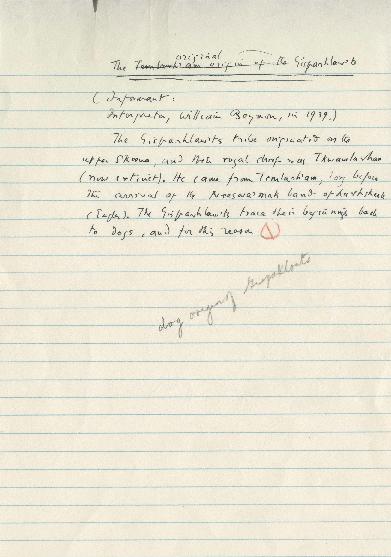 original
The Temlaxham origin of the Gispaxhlawts
(Informant:
Interpreter, William Beynon, in 1939.)
The Gispaxhlawts tribe originated on the
upper Skeena, and their royal chief was
(now extinct). He came from Temlaxham, long before
the arrival of the band of
(Eagles). The Gispaxhlawts trace their beginnings back
to dogs, and for this reason 1
dog origin of